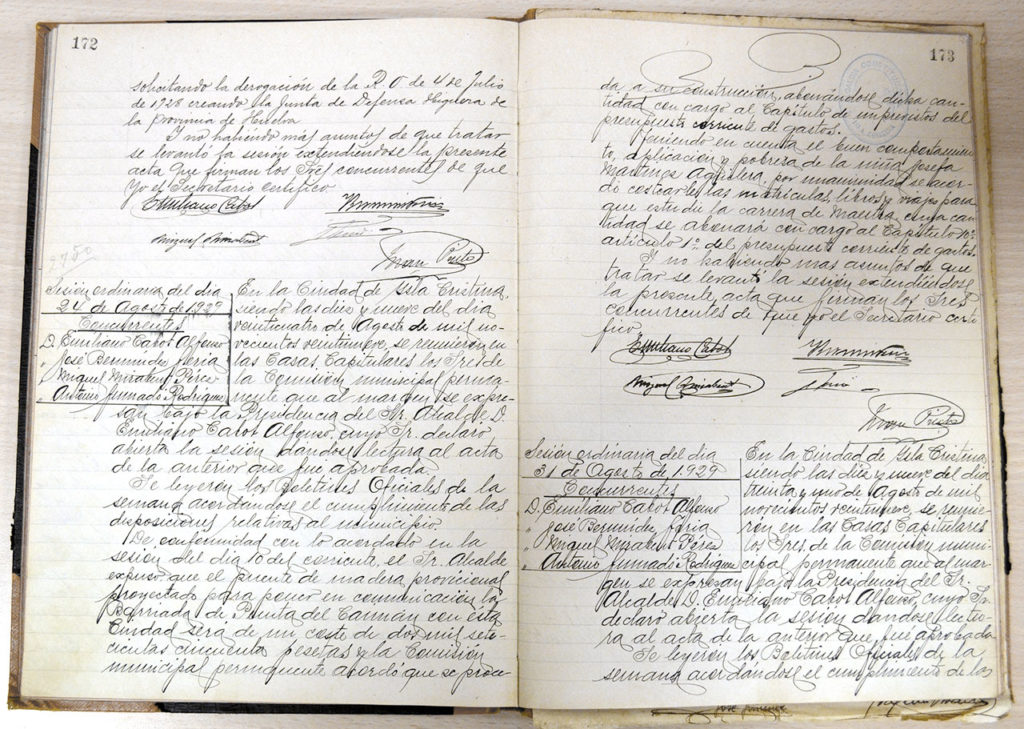 172
solicitando la derogación de la R. O de 4 de Julio
de 1928 creando la Junta de Defensa Higuera de
la provincia de Huelva
Y no habiendo más asuntos de que tratar
se levantó la sesión extendiéndose la presente
acta que firman los Sres concurrentes de que
yo el Secretario certifico
Emiliano Cabot
Miguel Mirabent
Juan Prieto
2750
Sesión ordinaria del dia
24 de Agosto de 1929
Concurrentes
D. Emiliano Cabot Alfonso
" José Bermúdez Feria
" Miguel Mirabent Pérez
" Antonio Jurado Rodríguez
En la Ciudad de Isla Cristina,
siendo las diez y nueve del dia
veinticuatro de Agosto de mil no-
vecientos veintinueve, se reunieron en
las Casas Capitulares los Sres. de
la Comisión municipal perma-
nente que al margen se expre-
san bajo la Presidencia del Sr. Alcalde D.
Emiliano Cabot Alfonso, cuyo Sr. declaró
abierta la sesión dándose lectura al acta
de la anterior que fué aprobada.
Se leyeron los Boletines Oficiales de la
semana acordándose el cumplimiento de las
disposiciones relativas al municipio.
De conformidad con lo acordado en la
sesión del dia 10 del corriente, el Sr. Alcalde
expuso que el puente de madera provicional
proyectado para poner en comunicación la
Barriada de Punta del Caimán con ésta
Ciudad será de un coste de dos mil sete-
cientas cincuenta pesetas y la Comisión
municipal permanente acordó que se proce-
173
da a su construcción, abonándose dicha can-
tidad con cargo al Capítulo de imprevistos del
presupuesto corriente de gastos.
Teniendo en cuenta el buen comportamien-
to, aplicación y pobreza de la niña Josefa
Martínez Aguilera, por unanimidad se acor-
dó costearle las matrículas, libros y viajes para
que estudie la carrera de Maestra, cuya can-
tidad se abonará con cargo al Capítulo
artículo 1º del presupuesto corriente de gastos.
Y no habiendo más asuntos de que
tratar se levantó la sesión extendiéndose
la presente acta que firman los Sres
concurrentes de que yo el Secretario certi-
fico
Emiliano Cabot
Miguel Mirabent
Juan Prieto
Sesión ordinaria del dia
31 de Agosto de 1.929
Concurrentes
D. Emiliano Cabot Alfonso
" José Bermúdez Feria
" Miguel Mirabent Pérez
" Antonio Jurado Rodríguez
En la Ciudad de Isla Cristina,
siendo las diez y nueve del dia
treinta y uno de Agosto de mil
novecientos veintinueve, se reunie-
ron en las Casas Capitulares
los Sres. de la Comisión muni-
cipal permanente que al mar-
gen se expresan bajo la Presidencia del Sr.
Alcalde D. Emiliano Cabot Alfonso, cuyo Sr.
declaró abierta la sesión dándose lectu-
ra al acta de la anterior que fué aprobada
Se leyeron los Boletines Oficiales de la
semana acordándose el cumplimiento de las